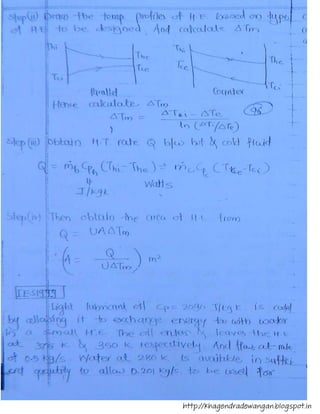 Step(ii) Draw the temp profiles of H.E. based on type
of H.E to be designed, And calculate ΔTm
Thi Thi
The The
Tce Tce
Tci Tci
Parallel Counter
Hence calculate ΔTm
ΔTm = ΔTi - ΔTe
ln (ΔTi/ΔTe)
Step(iii) Obtain H.T rate Q b/w hot & cold fluid
Q = ṁh Cph (Thi - The) = ṁc Cc (Tce - Tci)
J/kgk Watts
Step(iv) Then obtain the area of H.E from
Q = UAΔTm
A = Q m²
UΔTm
IES1999
Light lubricant oil Cp = 2090 J/kg K is cooled
by allowing it to exchange energy with water
in a small H.E. The oil enters & leaves the H.E
at 375 K & 350 K respectively. And flows at rate
of 0.5 kg/s. Water at 280 K is available in suffici
ent quantity to allow 0.201 kg/s. to be used for
http://khagendradewangan.blogspot.in